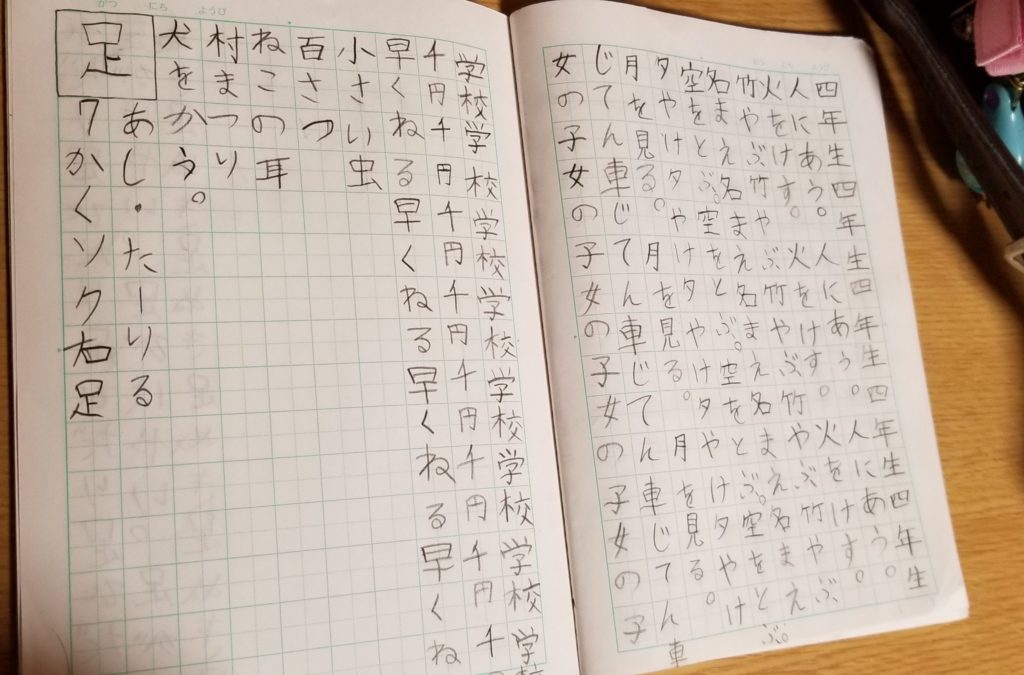 四年生四年生四年生四年生四年生
人にあう。人にあう。人にあう。
火をけす。火をけす。火をけす。
竹やぶ竹やぶ竹やぶ竹やぶ竹やぶ
名まえ名まえ名まえ名まえ名まえ
空をとぶ。空をとぶ。空をとぶ。空をとぶ。
夕やけ夕やけ夕やけ夕やけ夕やけ
月を見る。月を見る。月を見る。
じてん車じてん車じてん車じてん車
女の子女の子女の子女の子女の子
がつ にち ようび
学校学校学校学校学校学校学校学校
千円千円千円千円千円千円千円千
早くねる早くねる早くねる早くね
小さい虫
百さつ
ねこの耳
村まつり
犬をかう。
足
あし・たーりる
7かくソク右足